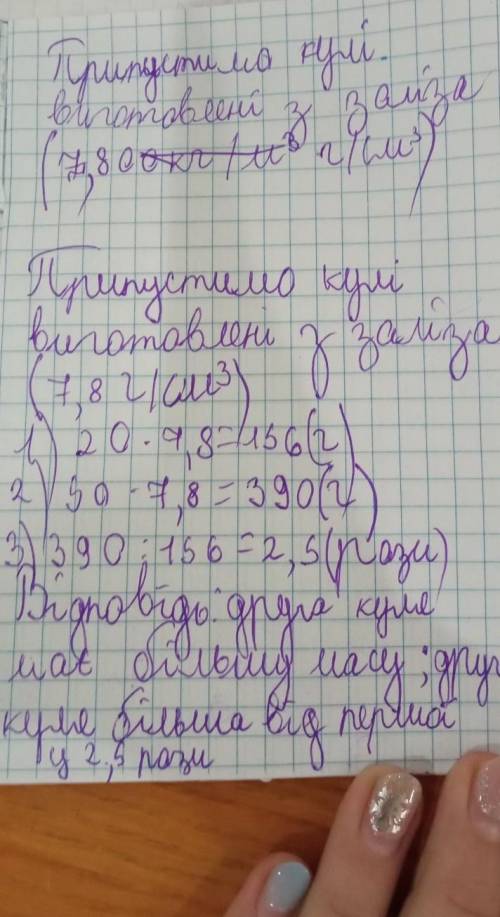 Припустимо кулі
виготовлені з заліза
(7,800кг/м³ г/см³)
Припустимо кулі
виготовлені з заліза
(7,8 г/см³)
1) 20 · 7,8 = 156(г)
2) 50 · 7,8 = 390(г)
3) 390 : 156 = 2,5(рази)
Відповідь: друга куля
має більшу масу; друг
куля більша від першої
у 2,5 рази